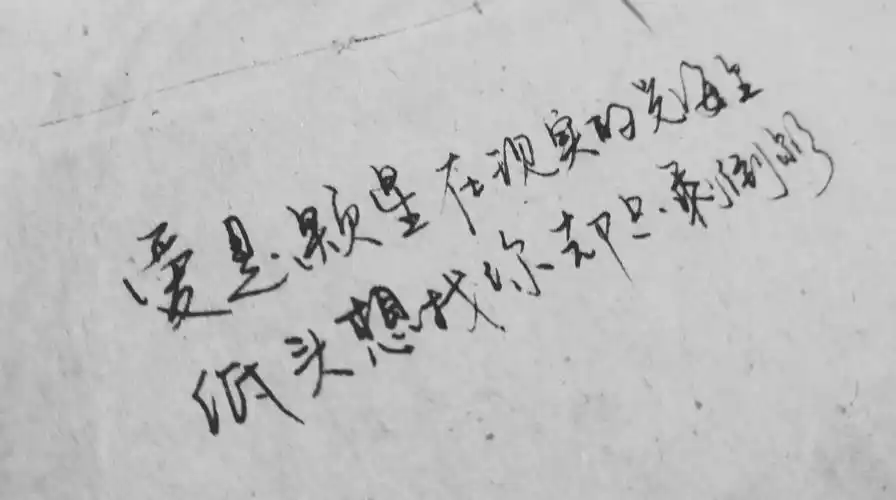 爱是颗星在现实的光海里
低头想找你却只剩倒影